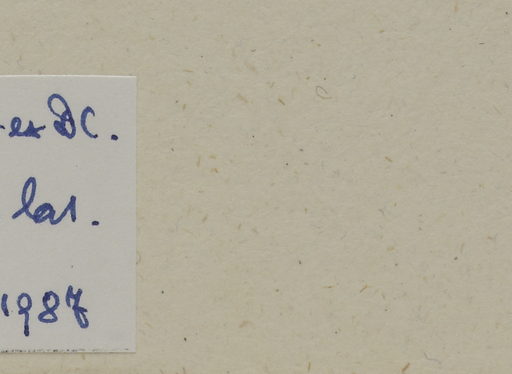 ex DC.
lat.
1987